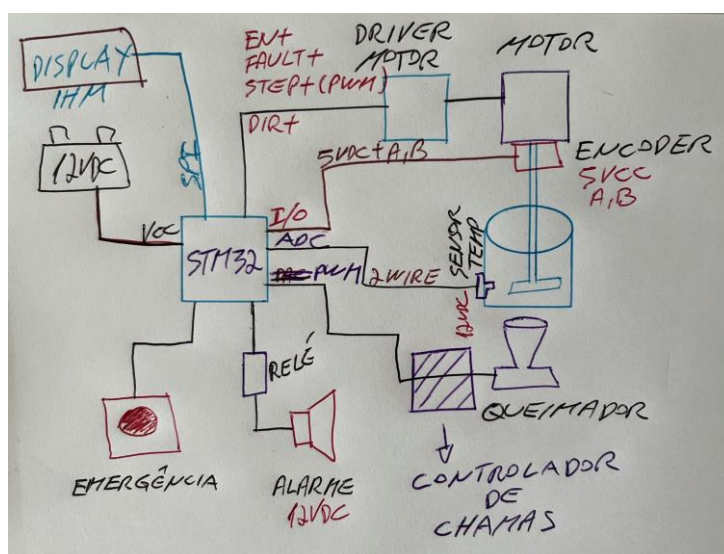 DISPLAY
IHM
12VDC
SPI
VCC
STM32
EN+
FAULT+
STEP+(PWM)
DIR+
DRIVER
MOTOR
MOTOR
5VDC+A,B
ENCODER
5VCC
A,B
I/O
ADC
PWM
2WIRE
SENSOR
TEMP
12VDC
RELÉ
EMERGÊNCIA
ALARME
12VDC
QUEIMADOR
CONTROLADOR
DE
CHAMAS